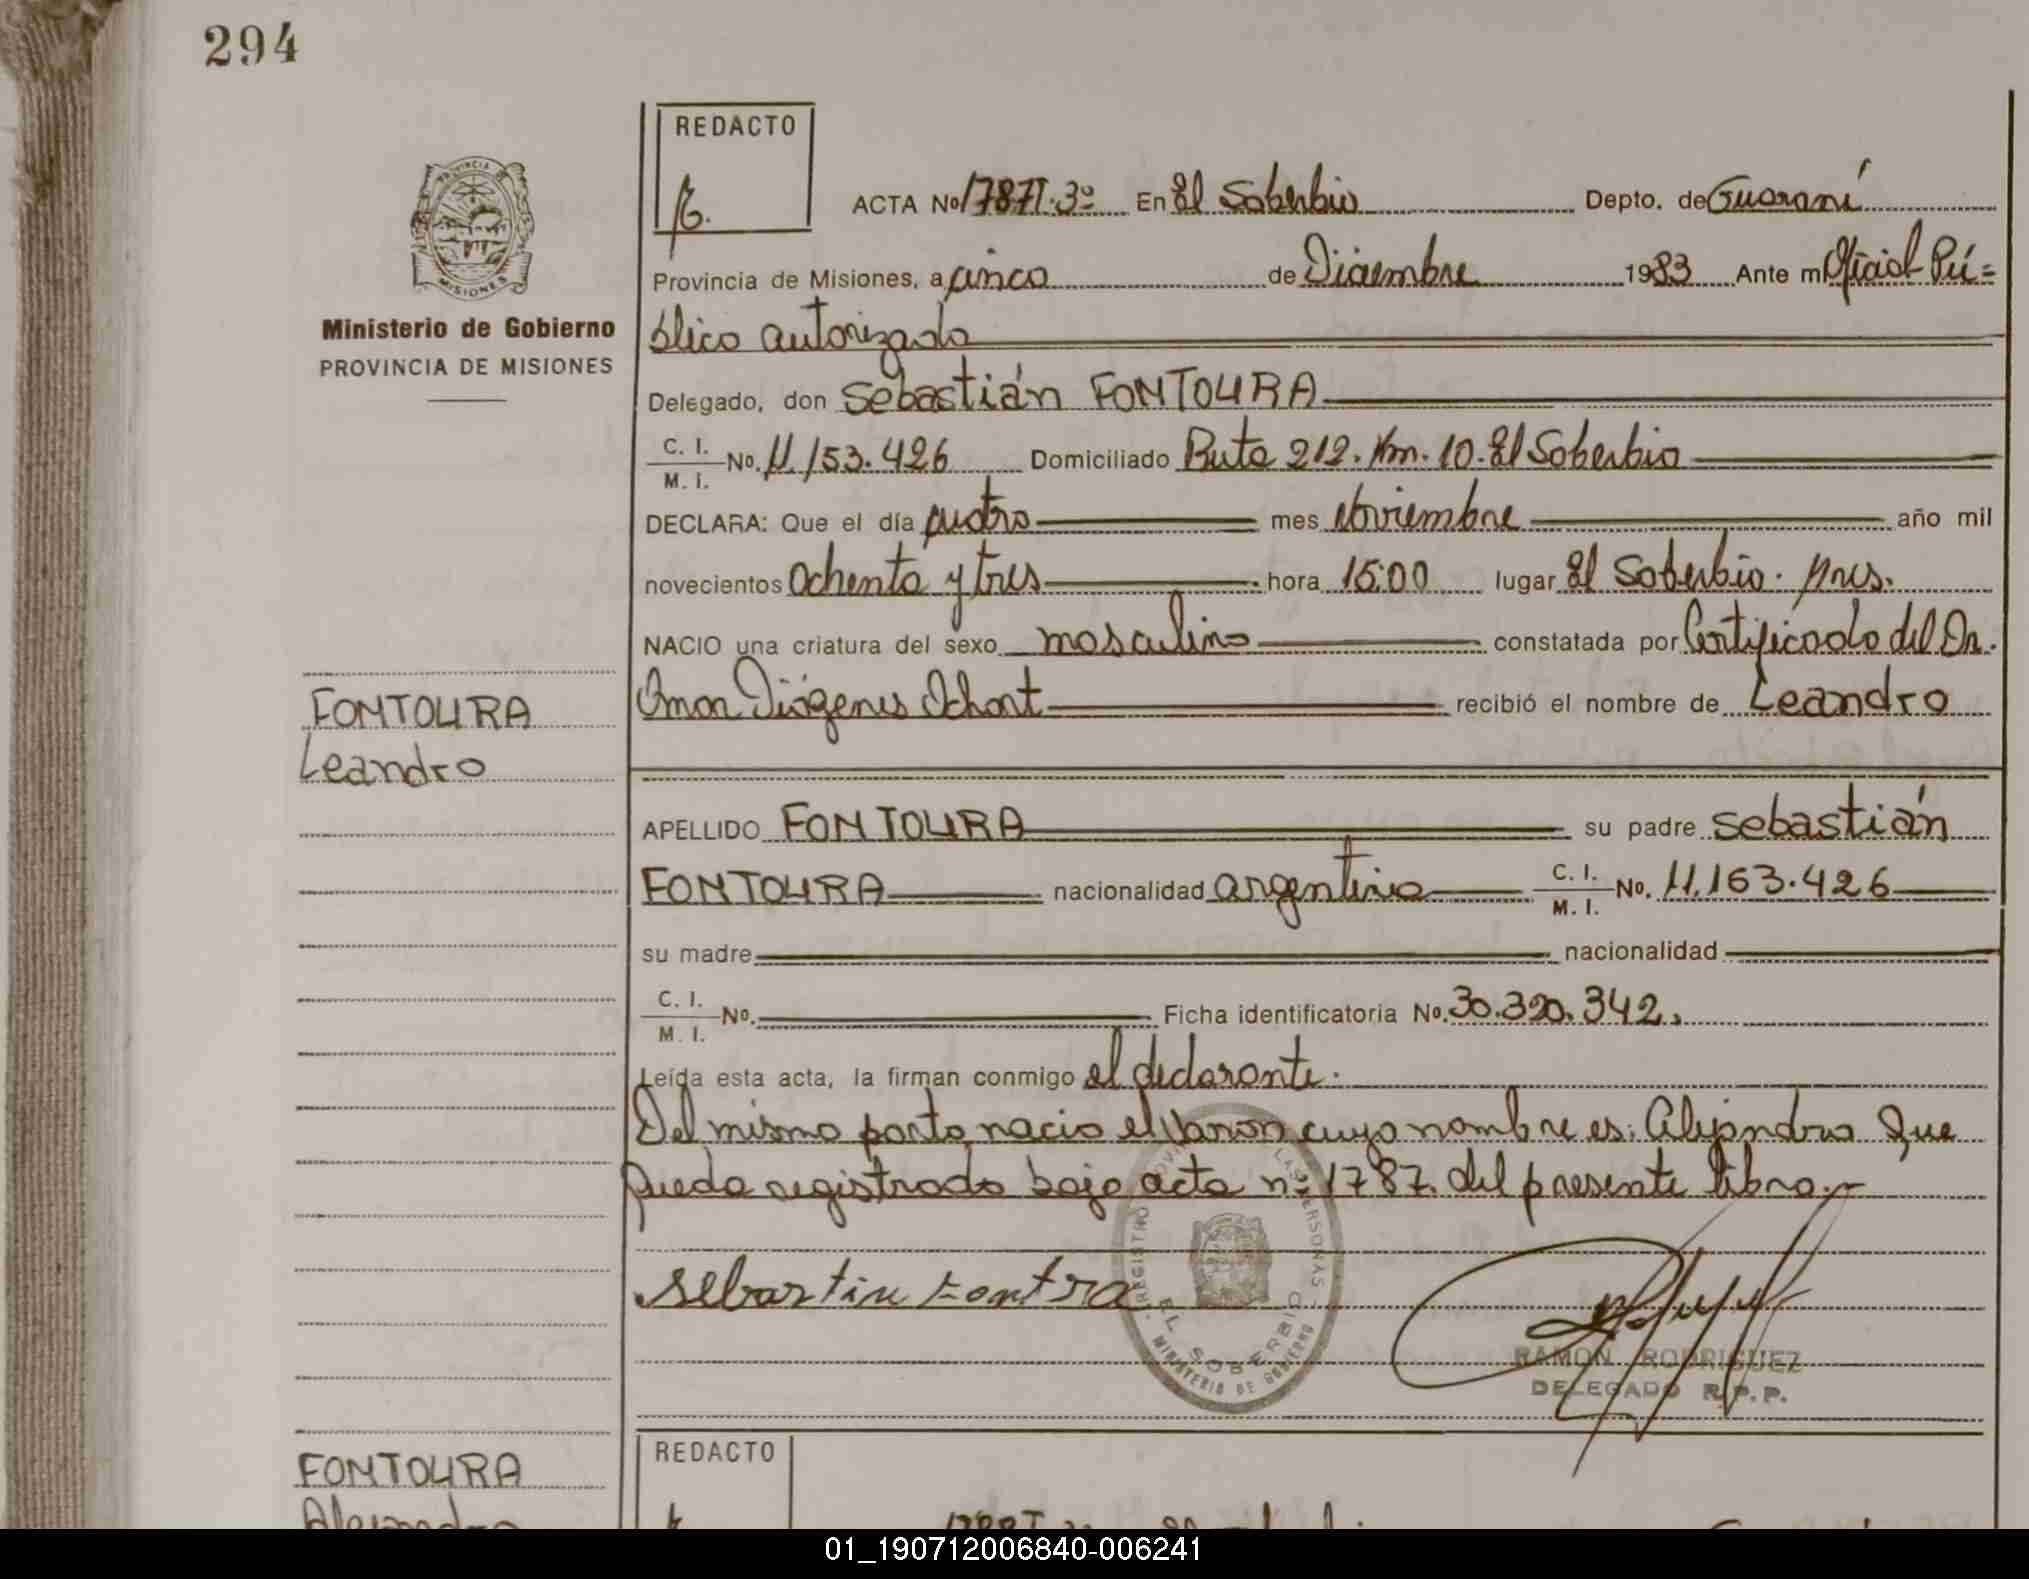 294
REDACTO
ACTA No 1787T.3º En El Soberbio Depto. de Guaraní
Provincia de Misiones, a cinco de Diciembre 1983 Ante mi Oficial Pú=
blico autorizado
Ministerio de Gobierno
PROVINCIA DE MISIONES
Delegado, don Sebastián FONTOURA
C. I. M. I. No. 11.153.426 Domiciliado Ruta 212. Km. 10. El Soberbio
DECLARA: Que el día cuatro mes Noviembre año mil
novecientos ochenta y tres hora 15:00 lugar El Soberbio. Mnes.
NACIO una criatura del sexo masculino constatada por Certificado del Dr.
Omar Diógenes recibió el nombre de Leandro
FONTOURA
Leandro
APELLIDO FONTOURA su padre Sebastián
FONTOURA nacionalidad argentino C. I. M. I. No. 11.163.426
su madre nacionalidad
C. I. M. I. No. Ficha identificatoria No. 30.320.342.
Leída esta acta, la firman conmigo el declarante.
Del mismo parto nacio el varon cuyo nombre es: Alejandro que
queda registrado bajo acta nº 1787. del presente libro.-
REGISTRO PROVINCIAL DE LAS PERSONAS
EL SOBERBIO
MINISTERIO DE GOBIERNO
sebastin Fontra
RAMON RODRIGUEZ
DELEGADO R.P.P.
REDACTO
FONTOURA
Alejandro
01_190712006840-006241